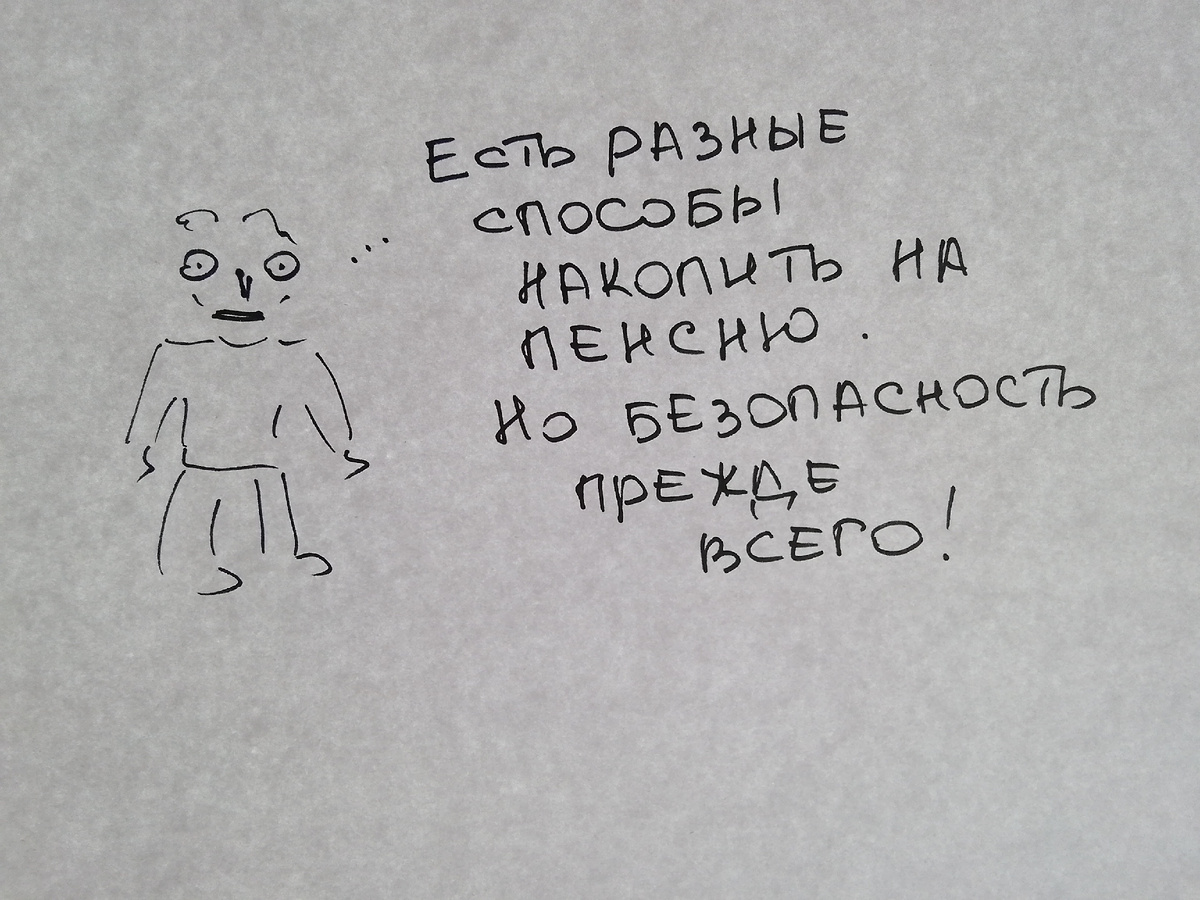 Есть РАЗНЫЕ
СПОСОБЫ
НАКОПИТЬ НА
ПЕНСИЮ.
НО БЕЗОПАСНОСТЬ
ПРЕЖДЕ
ВСЕГО!